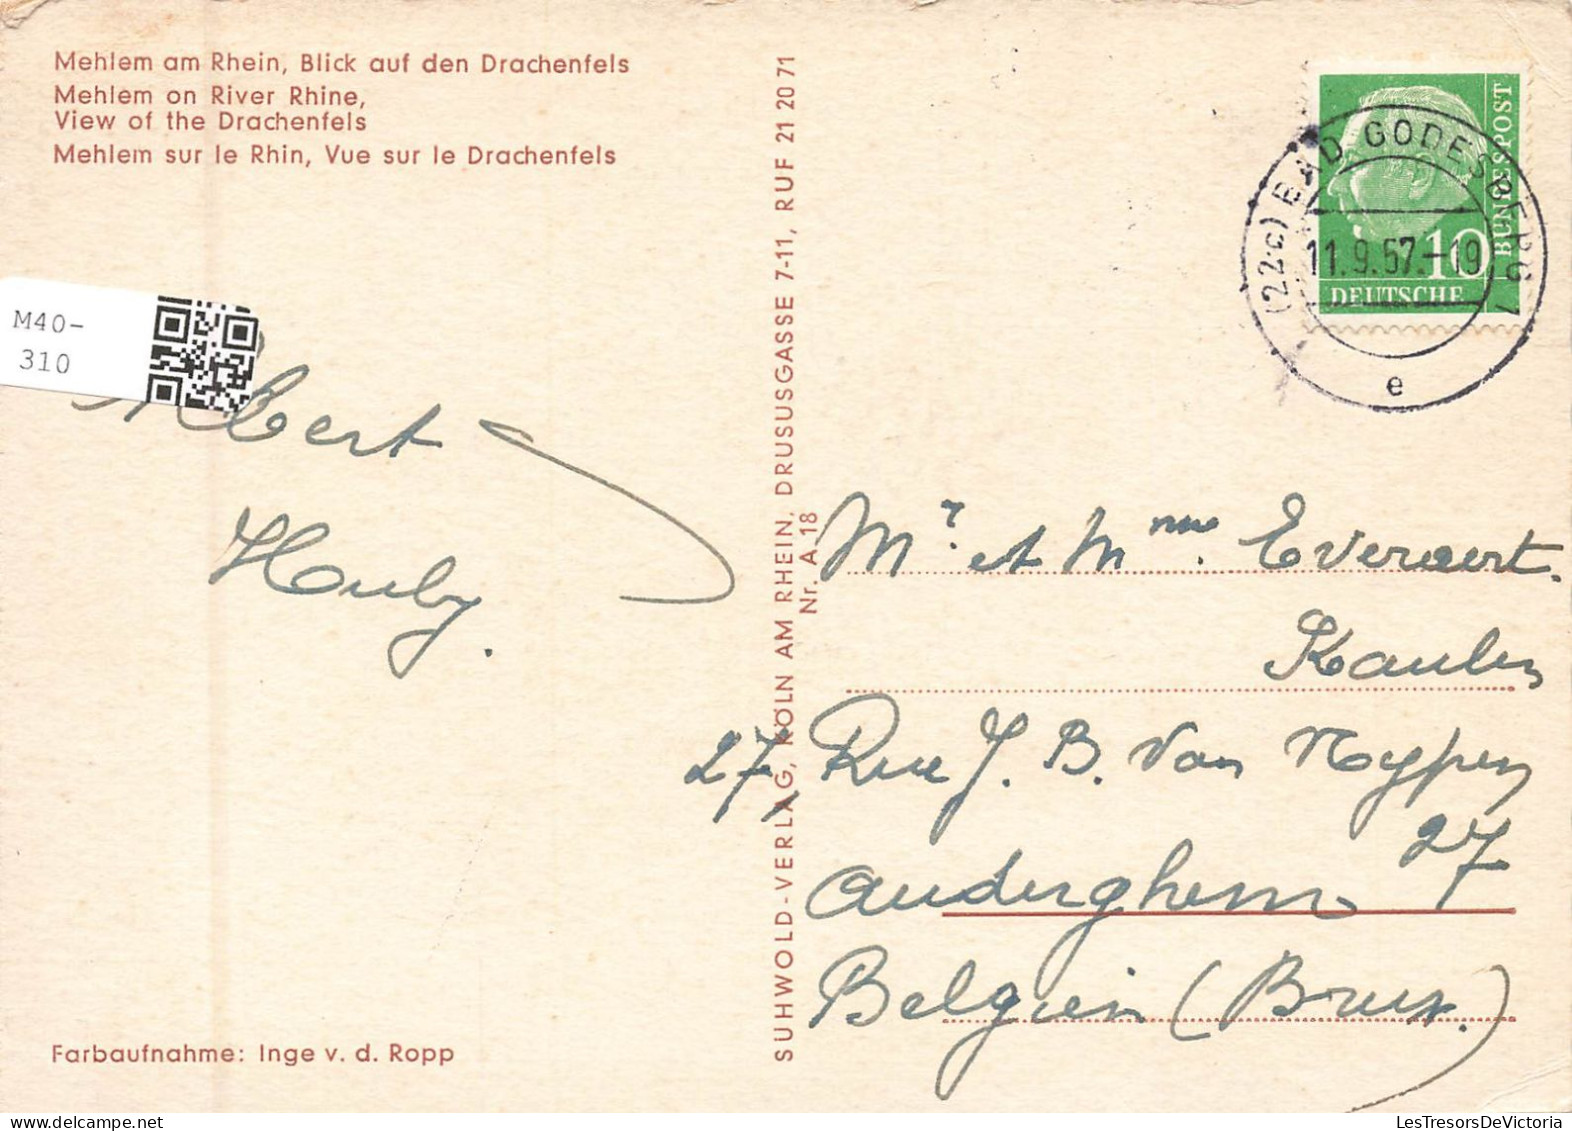 Mehlem am Rhein, Blick auf den Drachenfels
Mehlem on River Rhine,
View of the Drachenfels
Mehlem sur le Rhin, Vue sur le Drachenfels
M40-
310
Albert
Huby.
Farbaufnahme: Inge v. d. Ropp
SUHWOLD-VERLAG, KÖLN AM RHEIN, DRUSUSGASSE 7-11, RUF 21 20 71
Nr. A 18
BUNDESPOST
10
DEUTSCHE
(22c) BAD GODESBERG 1
11.9.57.-19
e
Mr. et Mme. Everaert.
27, Rue J. B. Van
27
Auderghem
Belgien (Brux.)
LesTresorsDeVictoria